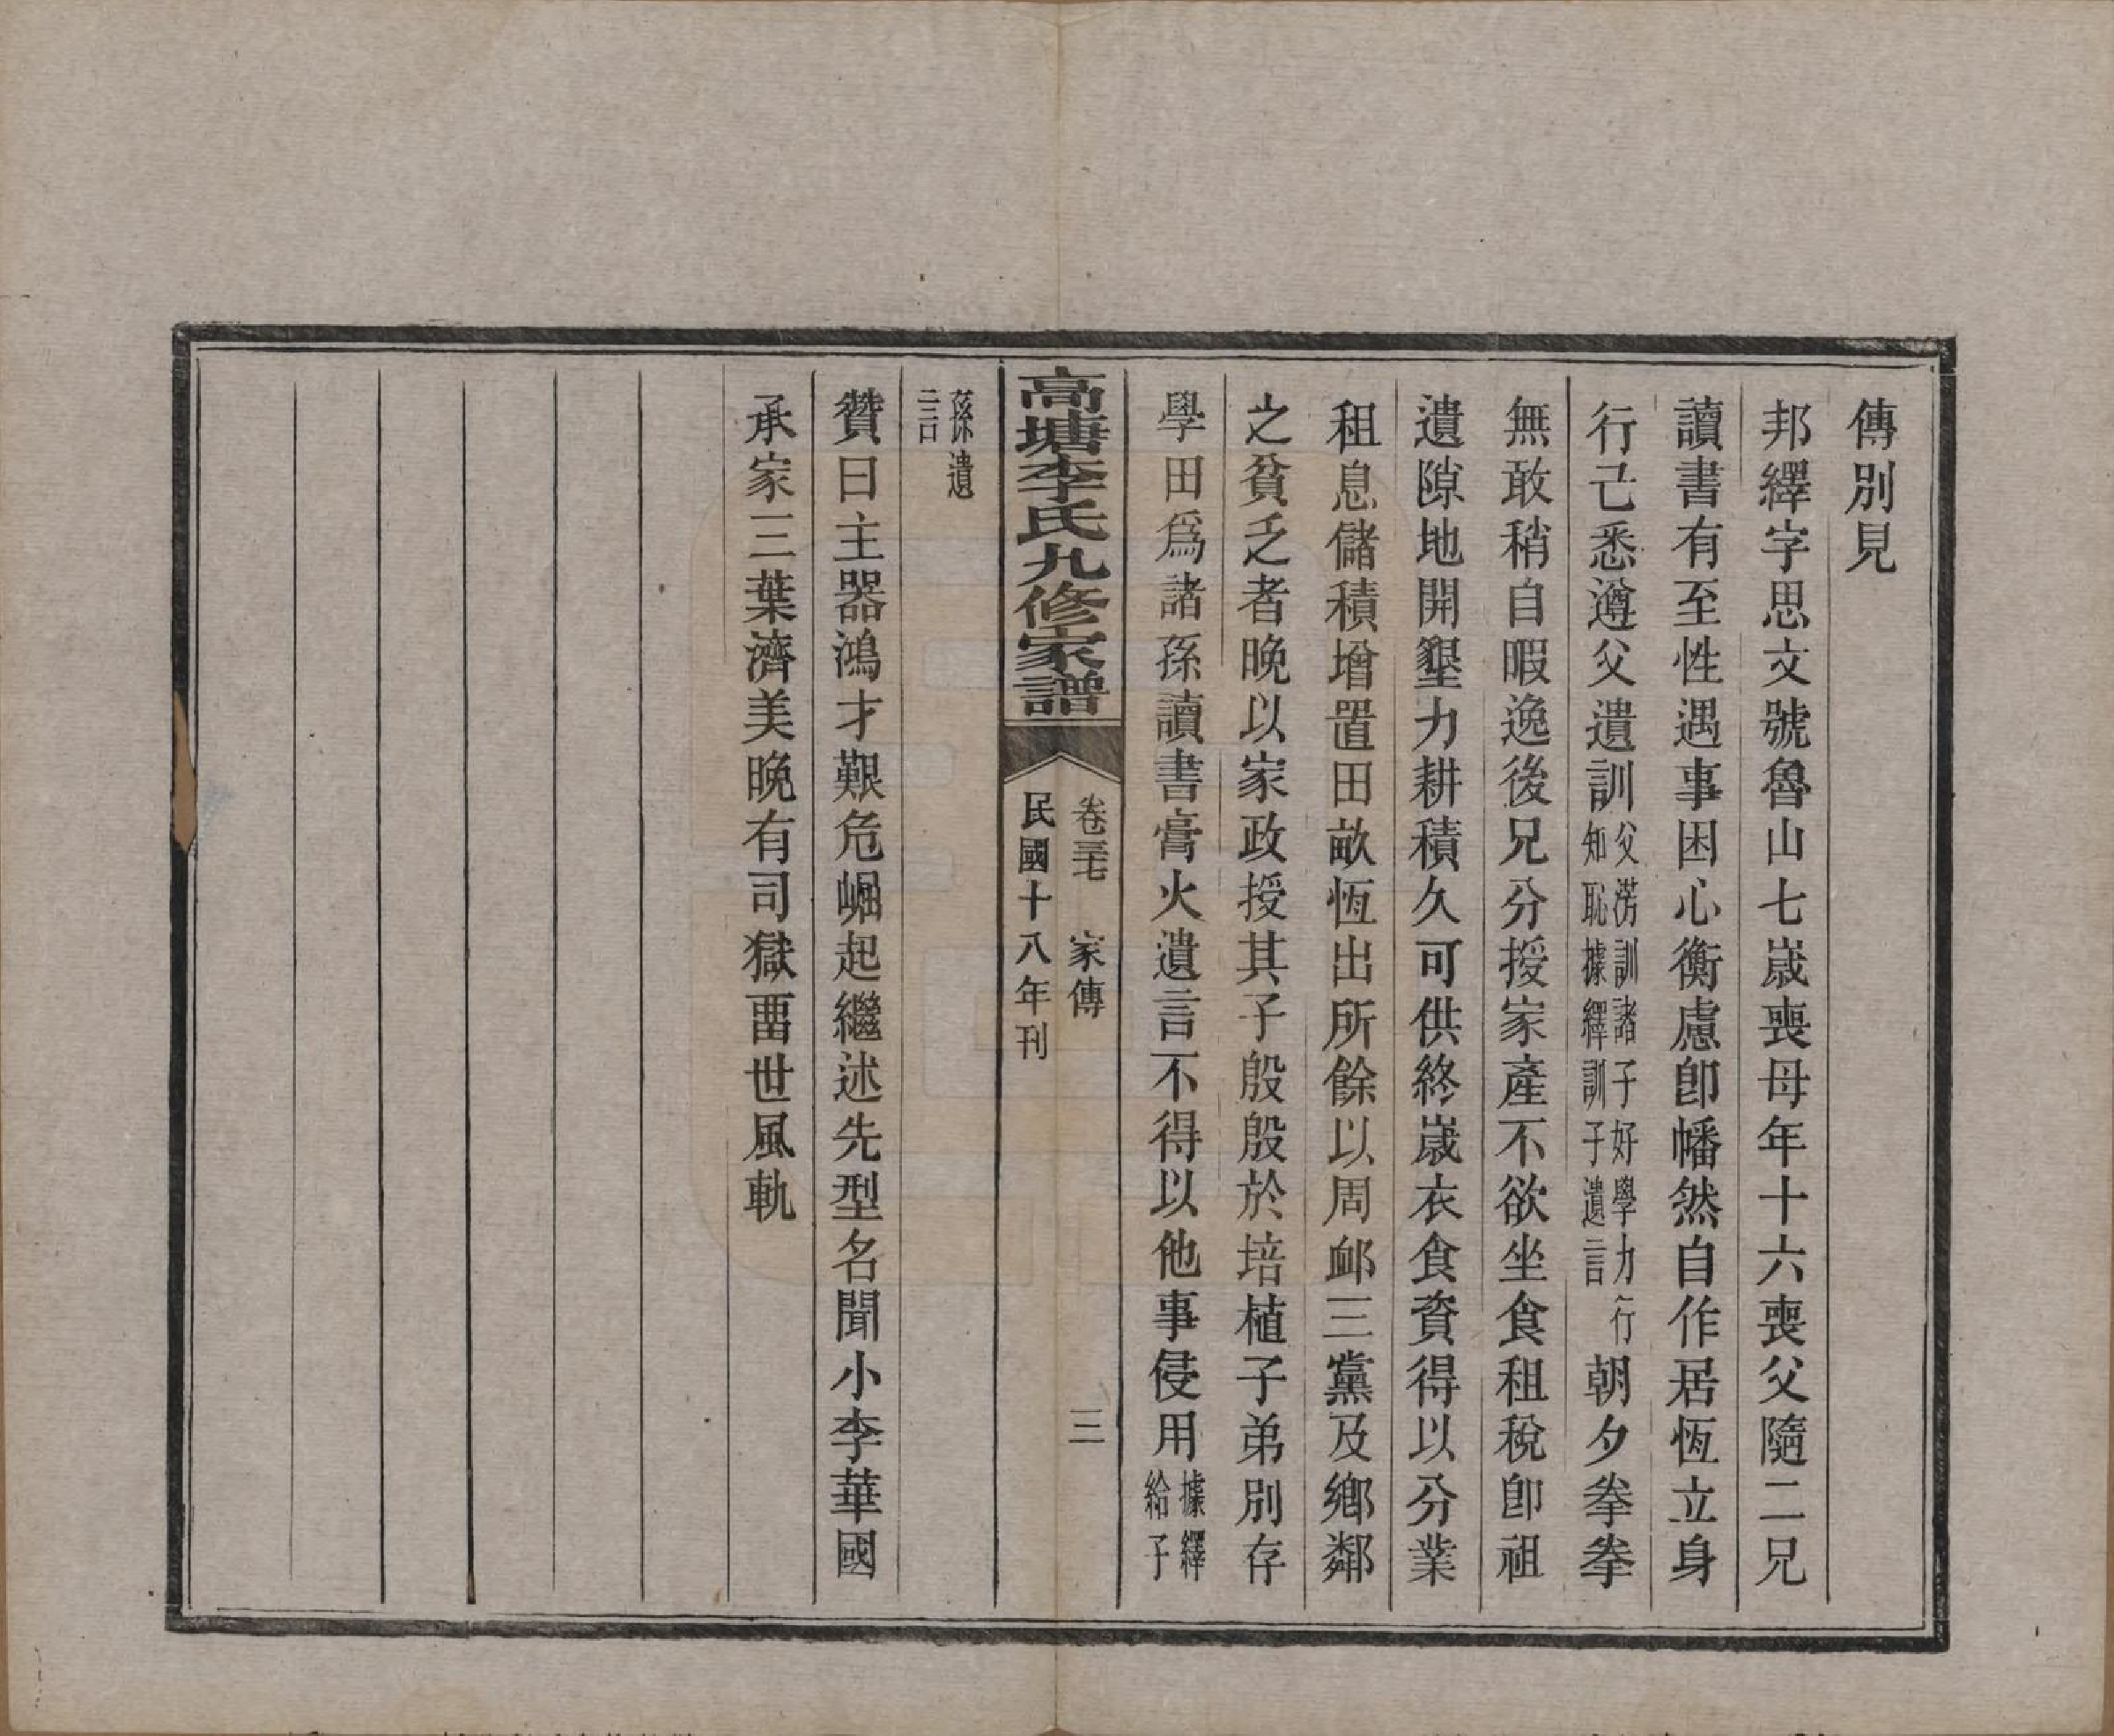 傳別見
邦繹字思文號魯山七歲喪母年十六喪父隨二兄
讀書有至性遇事困心衡慮卽幡然自作居恆立身
行己悉遵父遺訓父淓訓諸子好學力行知恥據繹訓子遺言朝夕拳拳
無敢稍自暇逸後兄分授家產不欲坐食租稅卽祖
遺隙地開墾力耕積久可供終歲衣食資得以分業
租息儲積增置田畝恆出所餘以周卹三黨及鄉鄰
之貧乏者晚以家政授其子殷殷於培植子弟別存
學田爲諸孫讀書膏火遺言不得以他事侵用據繹給子
高塘李氏九修家譜
卷三七 家傳 三
民國十八年刊
孫遺言
贊曰主器鴻才艱危崛起繼述先型名聞小李華國
承家三葉濟美晚有司獄畱世風軌